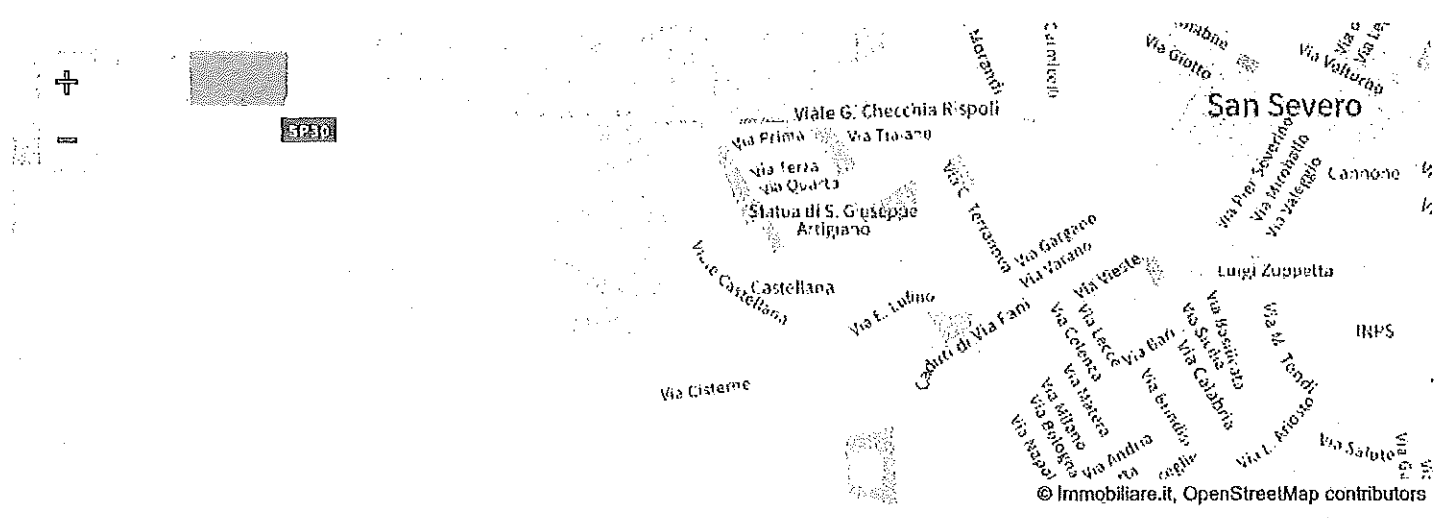 +
−
SP30
Morandi
Carmicelli
Via Giotto
Via Volturno
San Severo
Viale G. Checchia Rispoli
Via Prima
Via Traiano
Via Terza
Via Quarta
Statua di S. Giuseppe
Artigiano
Via C. Terranova
Via Pier Severino
Via Mirabello
Via Valeggio
Cannone
Via Gargano
Via Varano
Via Vieste
Luigi Zuppetta
Viale Castellana
Castellana
Via E. Lufino
Caduti di Via Fani
Via Colenza
Via Lecce
Via Bari
Via Sicilia
Via Basilicata
Via Calabria
Via M. Tondi
INPS
Via Cisterne
Via Matera
Via Milano
Via Bologna
Via Napol
Via Brindisi
Via Andria
Via L. Ariosto
Via Salute
Via Gu
© Immobiliare.it, OpenStreetMap contributors